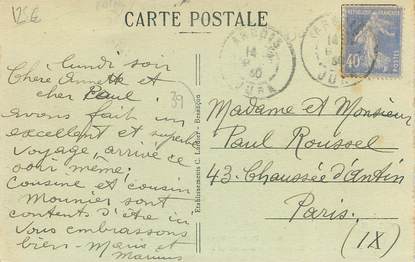 V58
CARTE POSTALE
ARBOIS
14
30
JURA
ARBOIS
14
30
JURA
40c
39
lundi soir
Chère Annette et
cher Paul
avons fait un
excellent et superbe
voyage, arrivé ce
soir même.
Cousine et cousin
Mounier sont
contents d'être ici
Vous embrassons
bien - Marie et
Marius
Etablissements C. Lardier - Besançon
Madame et Monsieur
Paul Roussel
43. Chaussée d'Antin
Paris.
(IX)